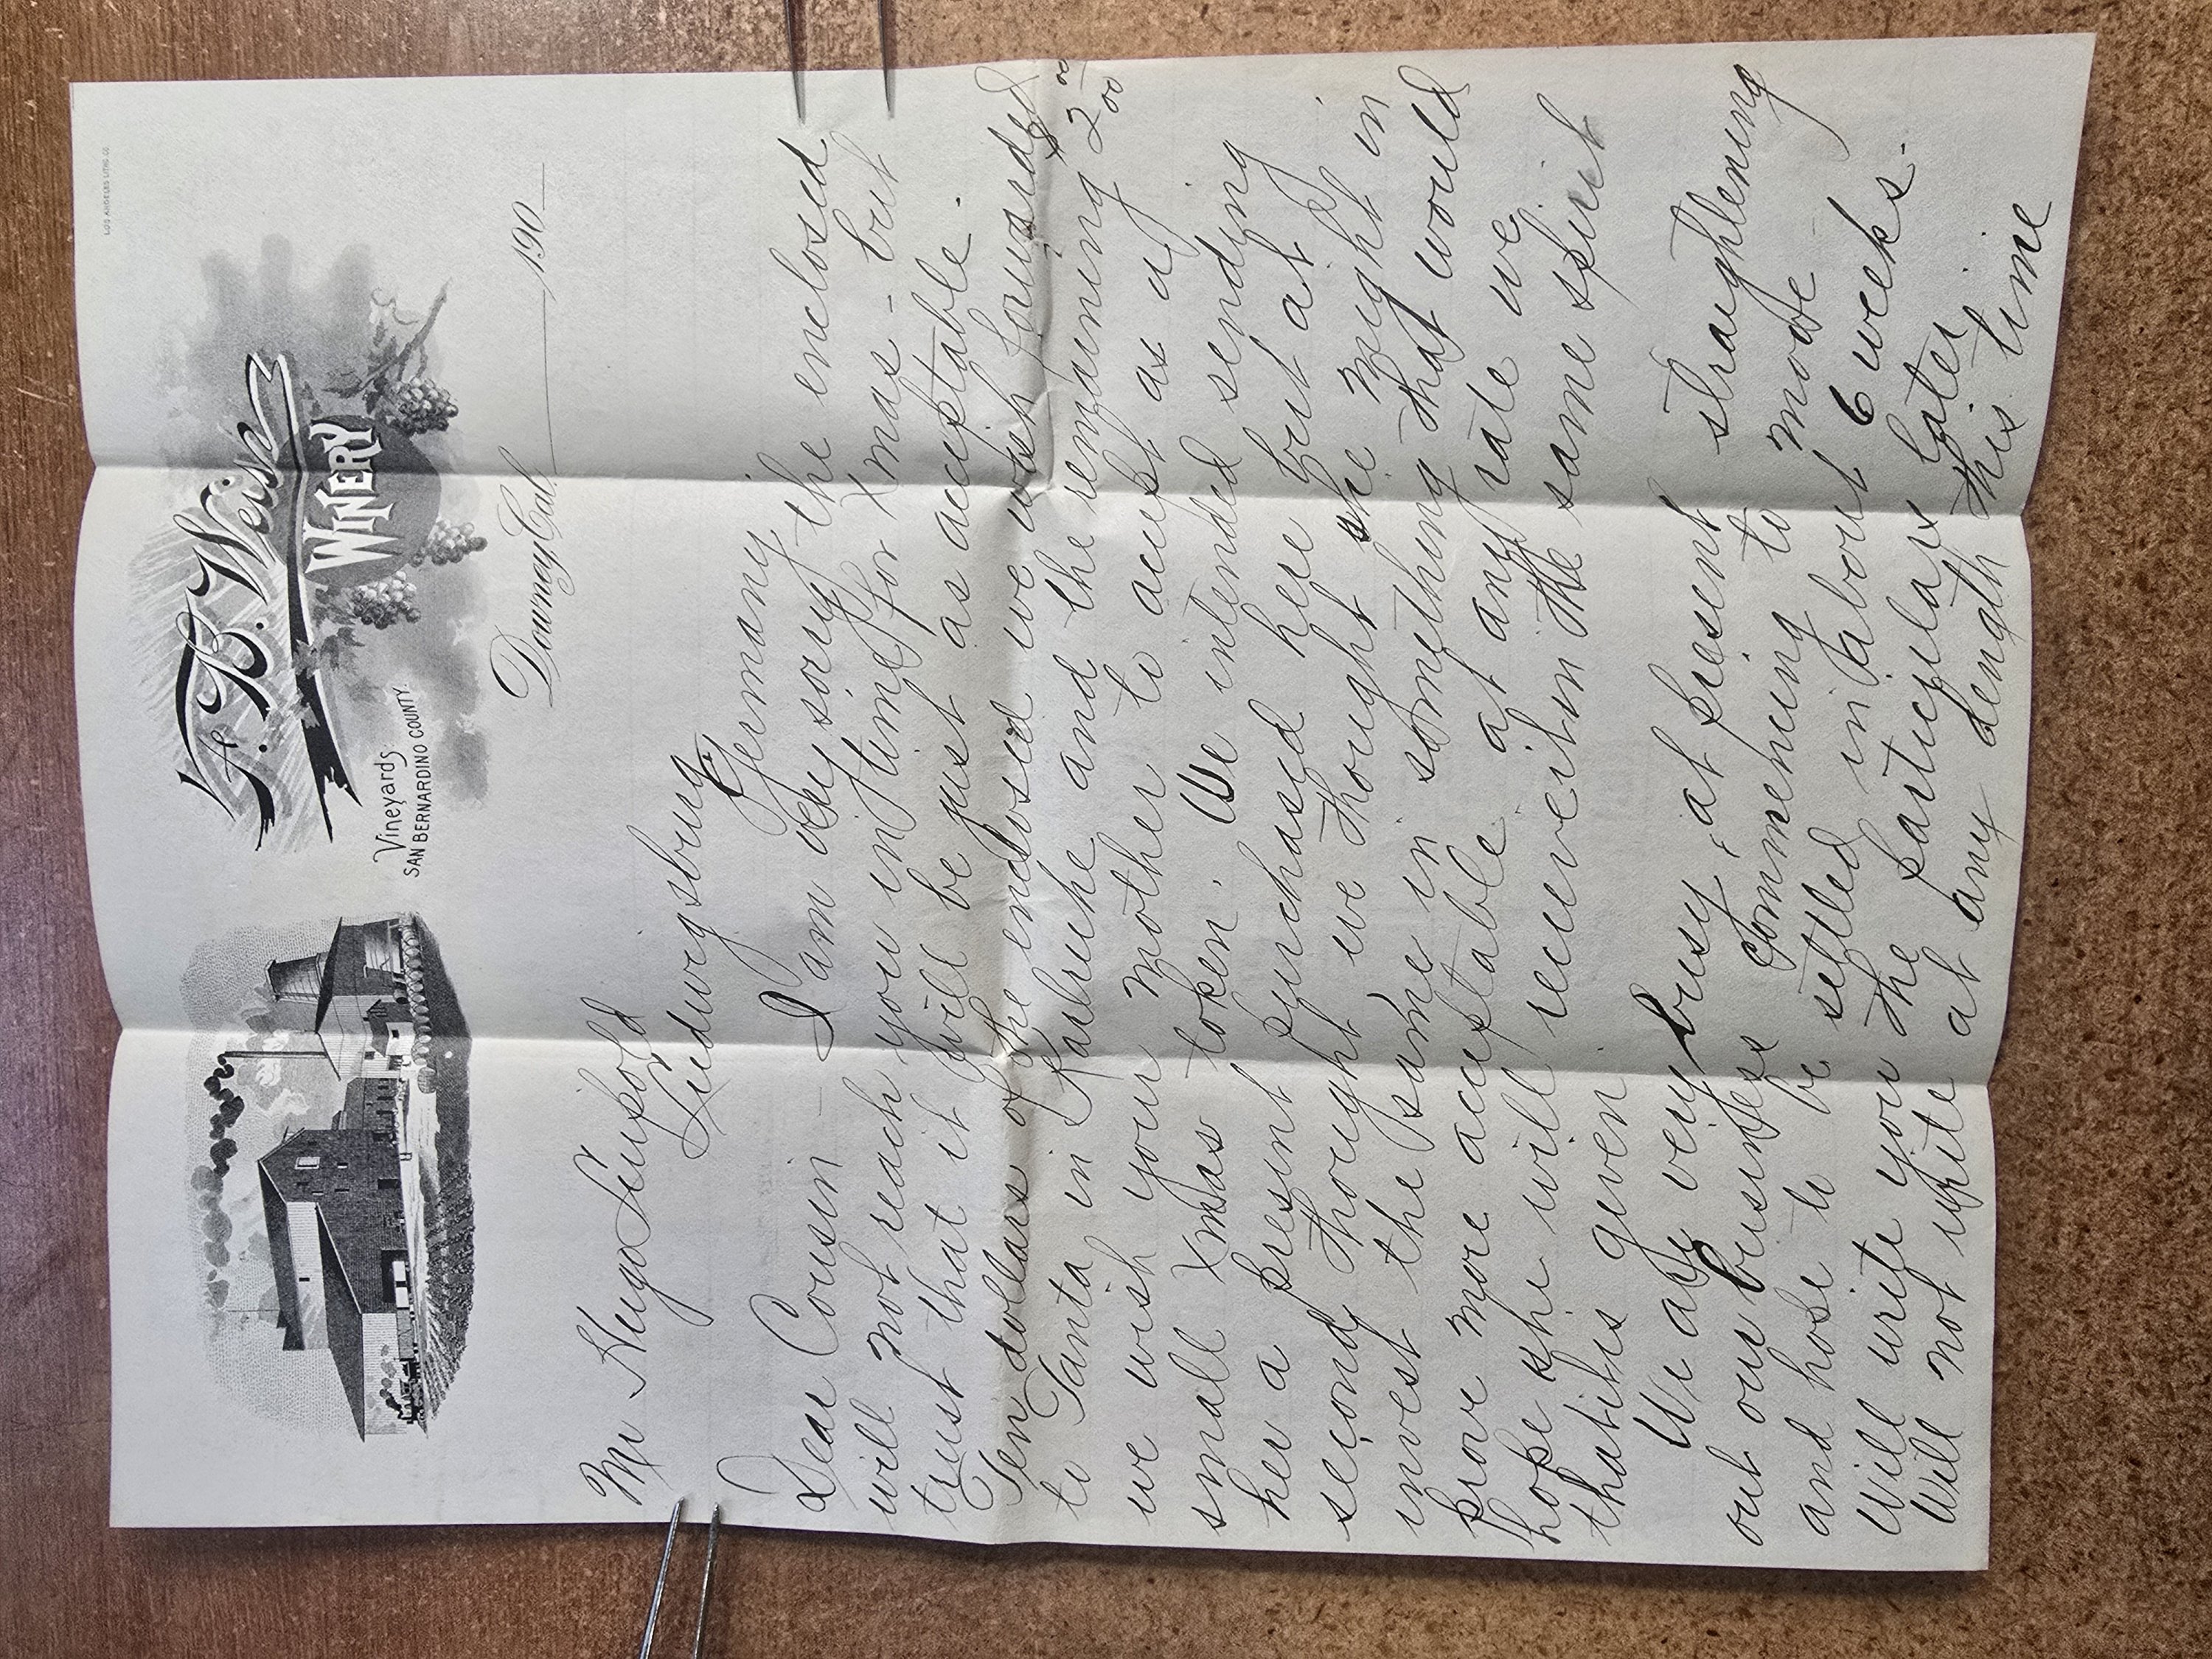 LOS ANGELES LITHO. CO.
F. B. Weis
WINERY
Vineyards
SAN BERNARDINO COUNTY.
Downey, Cal. 190
Mr Hugo Luipold
Ludwigsburg
Germany
Dear Cousin - I am very sorry the enclosed
will not reach you in time for Xmas - but
trust that it will be just as acceptable.
Ten dollars of the enclosed we wish forwarded
to Tanta in Karlruhe and the remaining $2.00
we wish your mother to accept as a
small Xmas token. We intended sending
her a present purchased here but at
second thought we thought she might in
invest the same in something that would
prove more acceptable at any rate we
hope she will receive it in the same spirit
that it is given
We are very busy at present straightening
out our business commencing to move
and hope to be settled in about 6 weeks.
Will write you the particulars later.
Will not write at any length this time